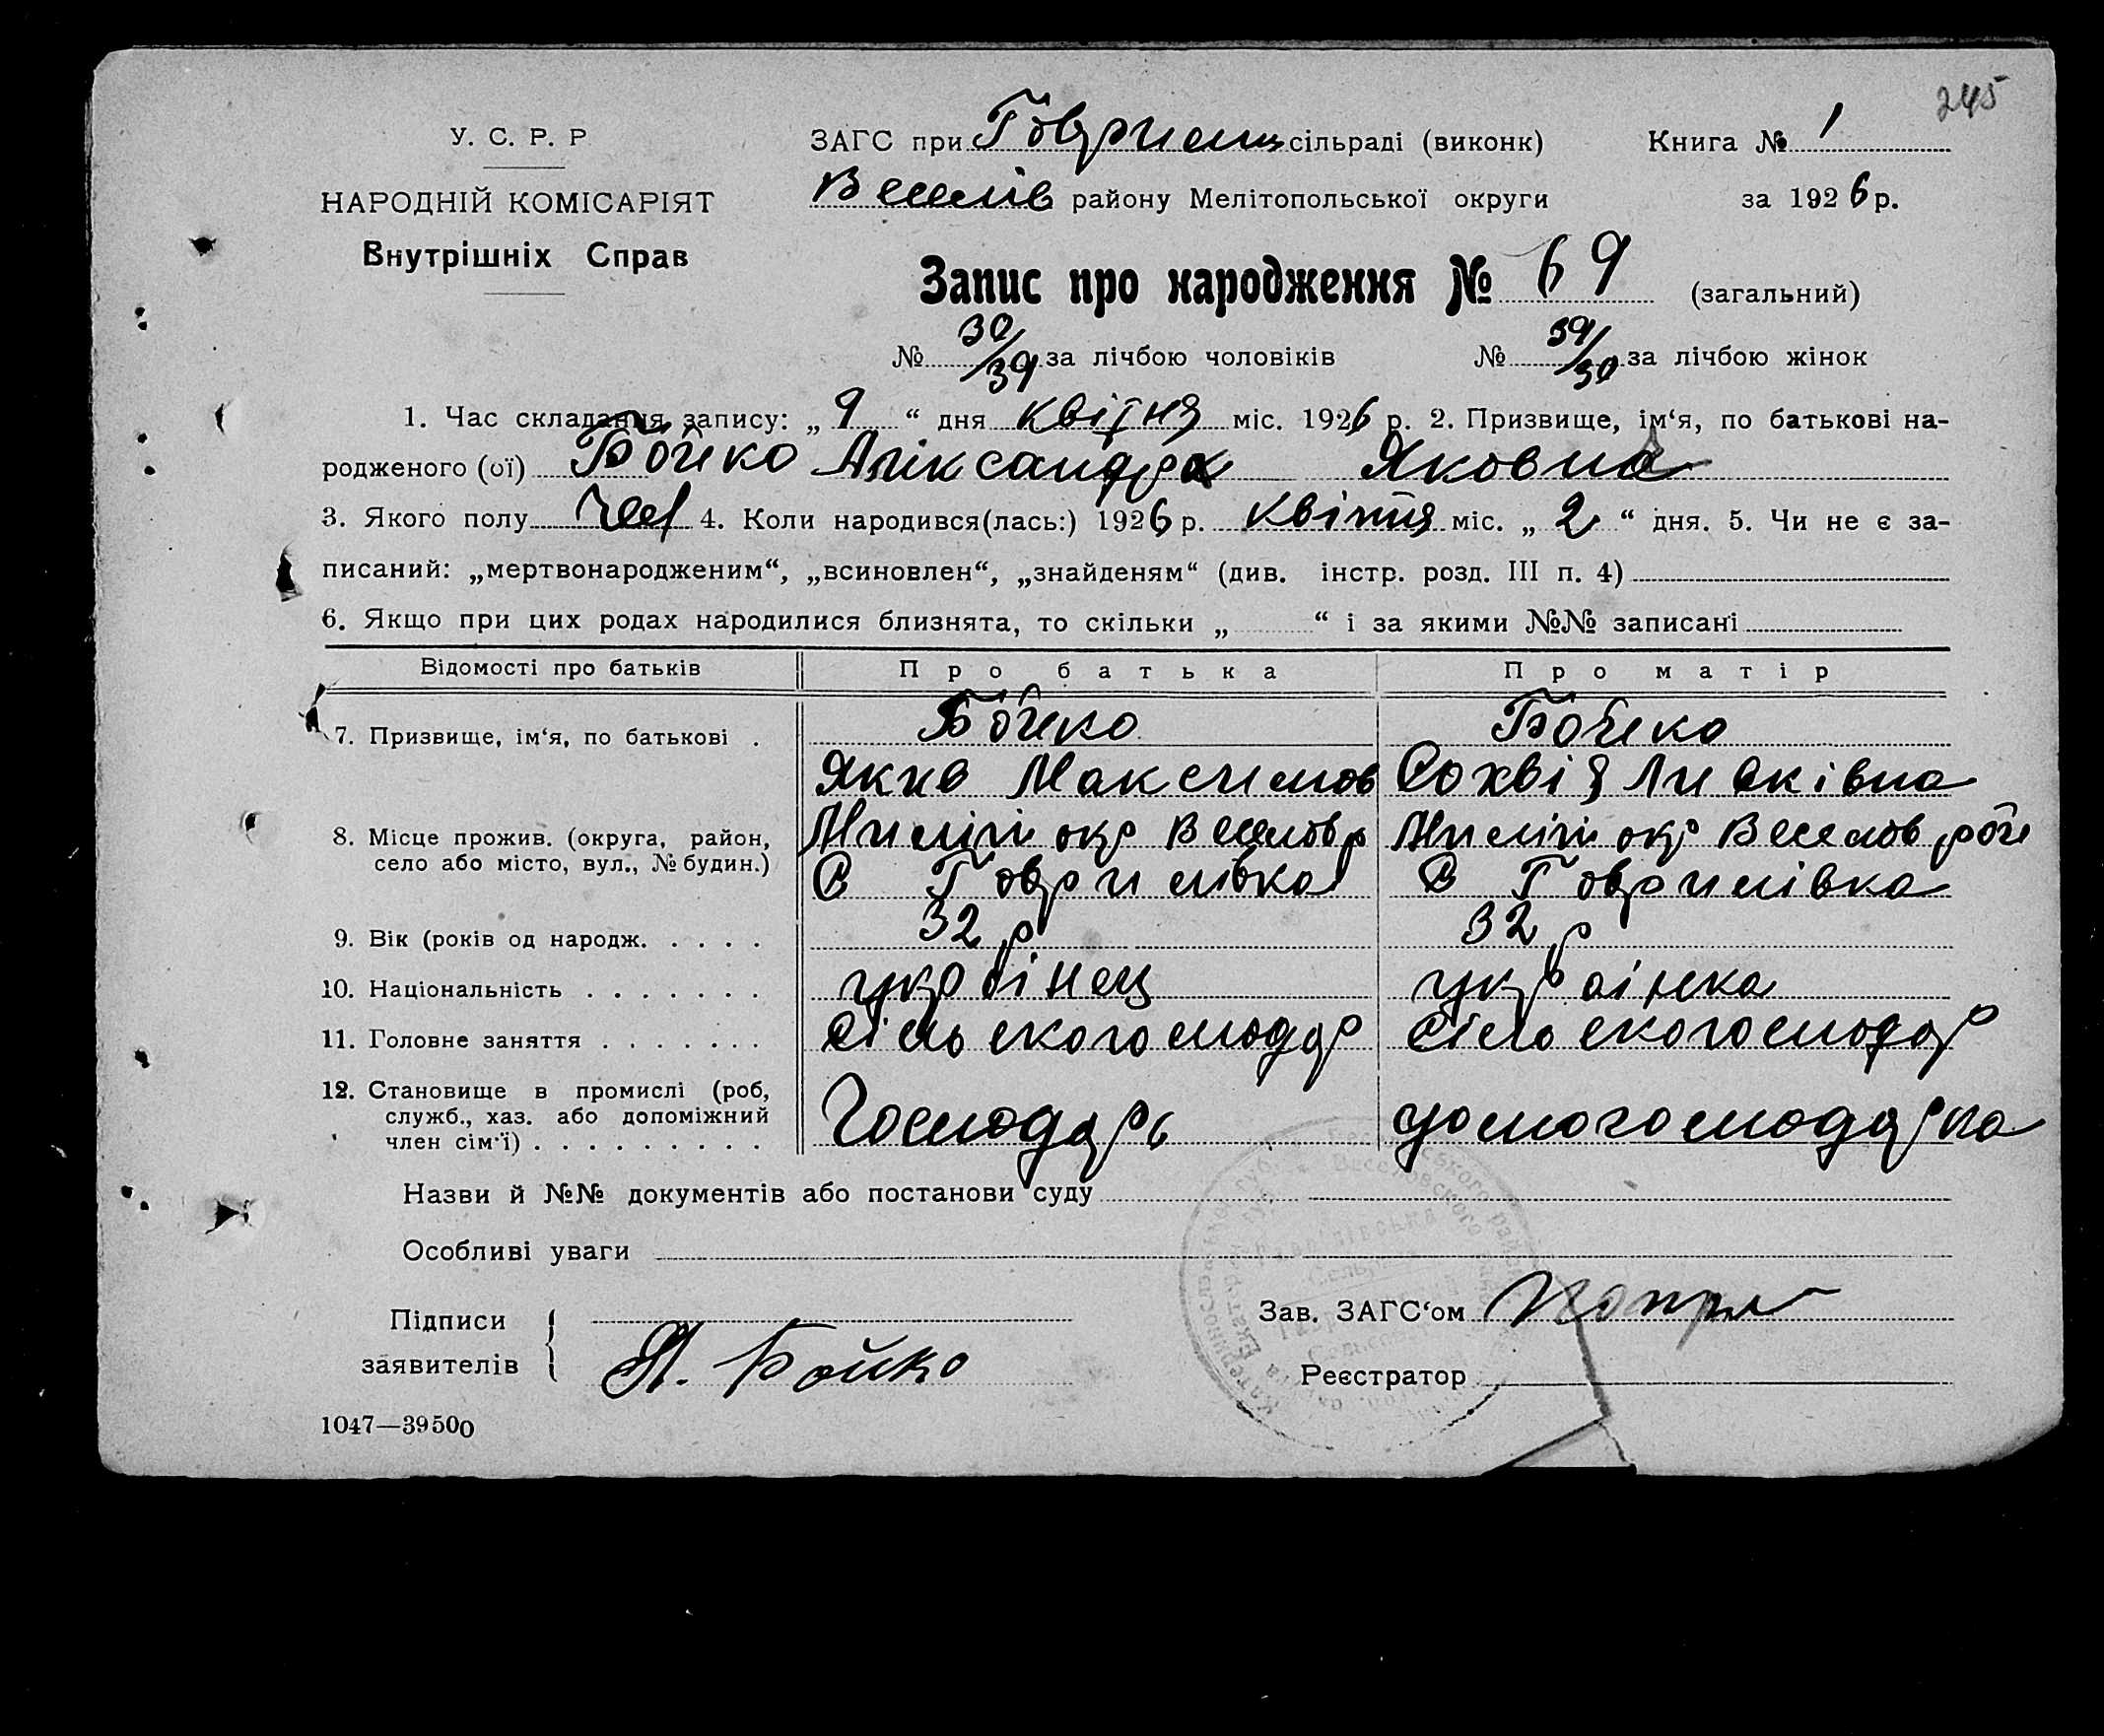 245
У. С. Р. Р
НАРОДНІЙ КОМІСАРІЯТ
Внутрішніх Справ
ЗАГС при Гаврилец сільраді (виконк) Книга № 1
Веселів району Мелітопольської округи за 1926 р.
Запис про народження № 69 (загальний)
№ 30/39 за лічбою чоловіків № 39/30 за лічбою жінок
1. Час складання запису: „ 9 “ дня квітня міс. 1926 р. 2. Призвище, ім‘я, по батькові на-
родженого (ої) Бойко Александра Яковна
3. Якого полу 4. Коли народився(лась:) 1926 р. квітня міс. „ 2 “ дня. 5. Чи не є за-
писаний: „мертвонародженим“, „всиновлен“, „знайденям“ (див. інстр. розд. III п. 4)
6. Якщо при цих родах народилися близнята, то скільки „ “ і за якими №№ записані
Відомості про батьків Про батька Про матір
7. Призвище, ім‘я, по батькові . Бойко Бойко
Якив Максимов Сохвія Ливківна
8. Місце прожив. (округа, район, село або місто, вул., № будин.) Милит окр Веселов р Милит окр Веселов рой
С Гаврилівка С Гаврилівка
9. Вік (років од народж. . . . . 32 р 32 р
10. Національність . . . . . . . українец українка
11. Головне заняття . . . . . . . сільськогосподар сільскогосподар
12. Становище в промислі (роб, служб., хаз. або допоміжний член сім‘ї) . . . . . . . . . Господарь домогосподарка
Назви й №№ документів або постанови суду
Особливі уваги
Підписи заявителів Я. Бойко
Зав. ЗАГС‘ом
Реєстратор
1047—39500